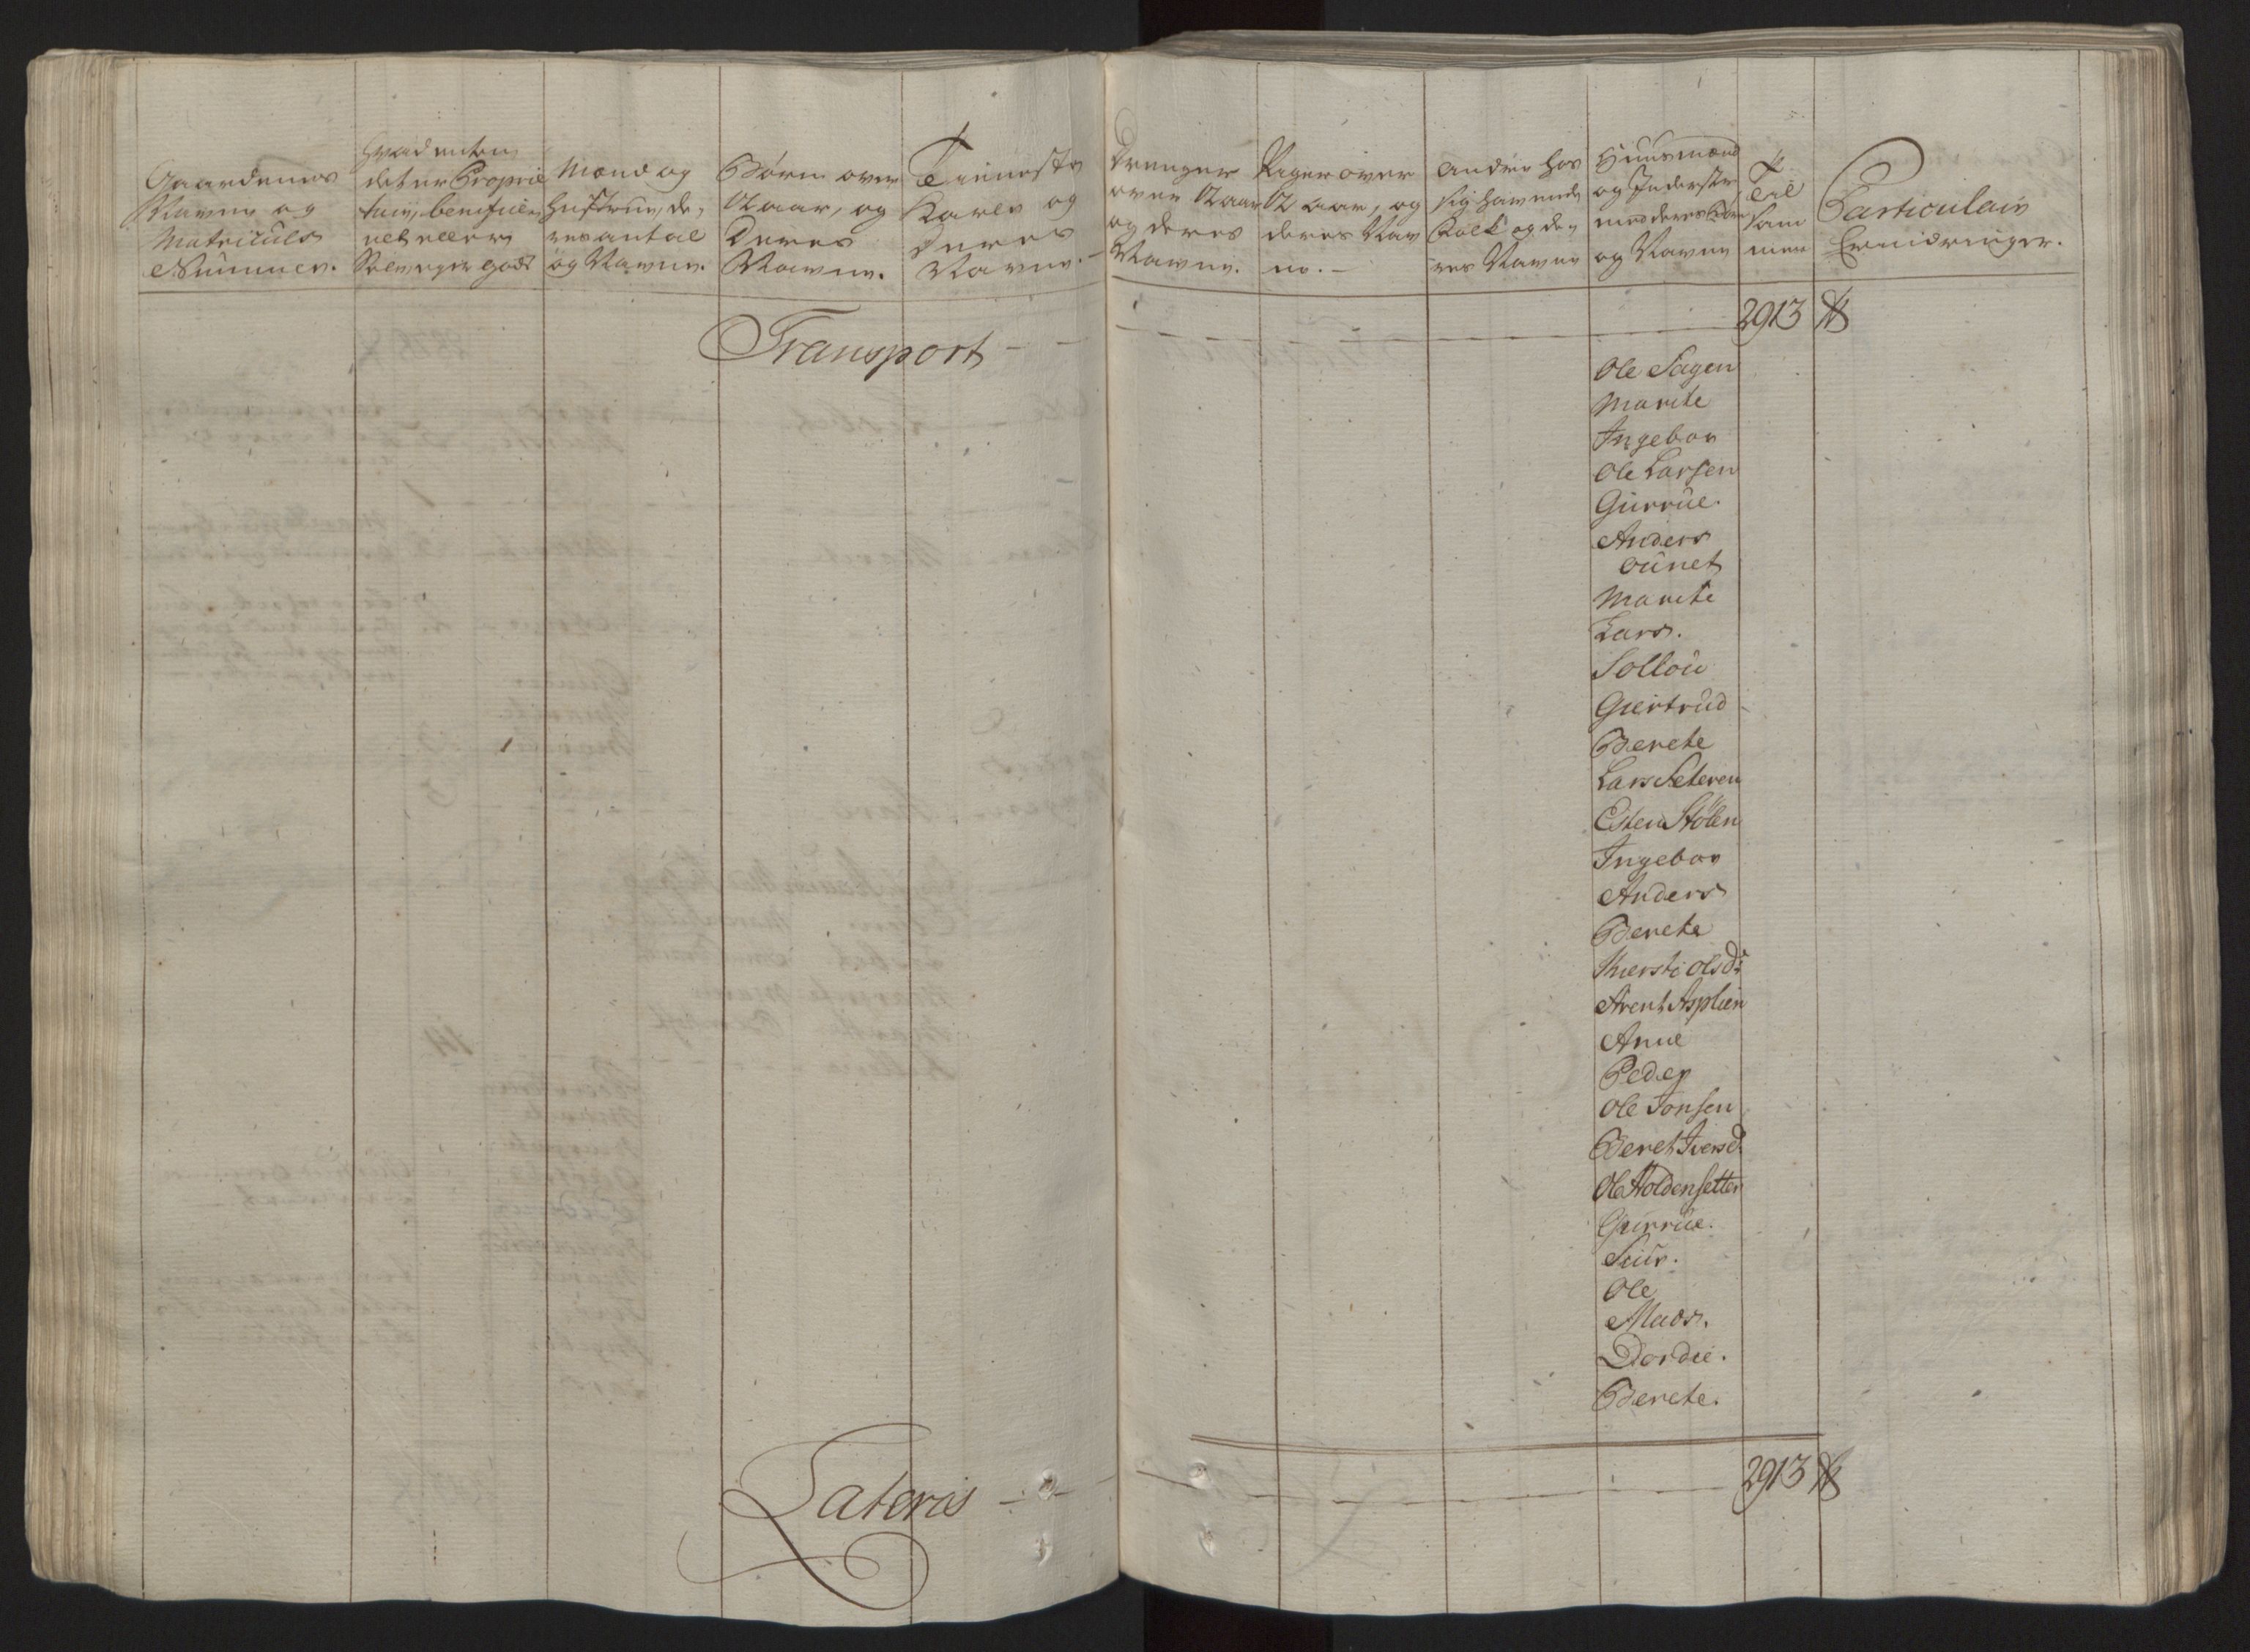 Gaardenes
Navne og
Matriculs
Nummer.
Hvad enten
det er Proprie
tair, benificeret
eller
Selveyer gods
Mænd og
Hustruer, de,
res antal
og Navne.
Børn over
12 aar, og
Deres
Navne.
Tienneste
Karle og
Deres
Navne.
Drenger
over 12 aar
og deres
Navne.
Piger over
12 aar, og
deres Nav
ne.
Andre hos
sig havende
Folk og de,
res Navne
Huusmænd
og Inderster
med deres Børn
og Navne
Til
sam
men
Particulair
Erindringer.
Transport - - 2913
Ole Sagen
Marite
Ingebor
Ole Larsen
Gurrue.
Anders
Ounet
Marite
Lars.
Sollou
Giertrud
Berete
Lars Seteren
Esten Stölen
Ingebor
Anders
Berete
Kiersti Olsdr
Arent Asplien
Anne
Peder
Ole Jonsen
Beret Iversd.
Ole Holdensetter
Gurrue.
Siur.
Ole
Mads.
Dordie.
Berete.
Lateris - - 2913